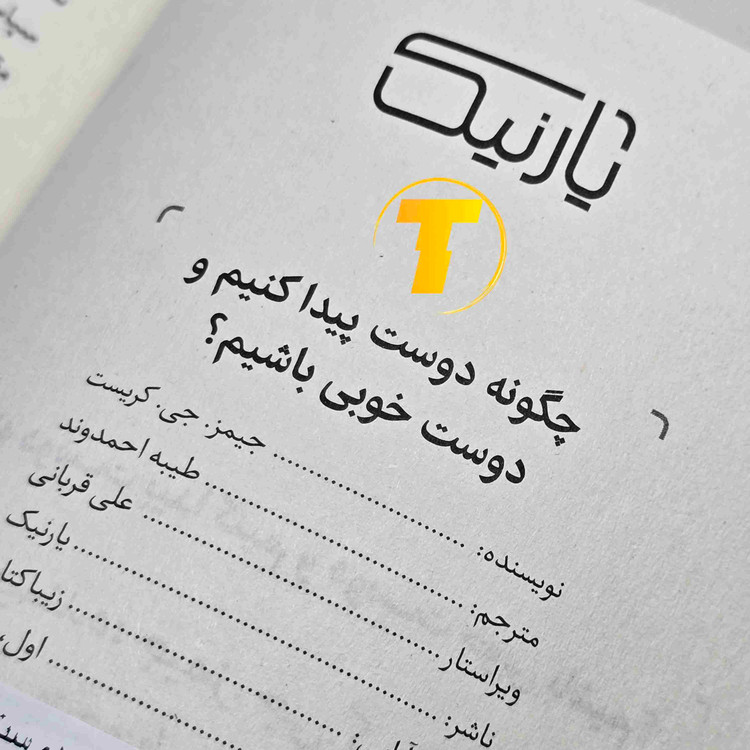 یارنیک
T
چگونه دوست پیدا کنیم و
دوست خوبی باشیم؟
نویسنده: جیمز. جی. کریست
مترجم: طیبه احمدوند
ویراستار علی قربانی
ناشر: یارنیک
زیباکتا
اول،